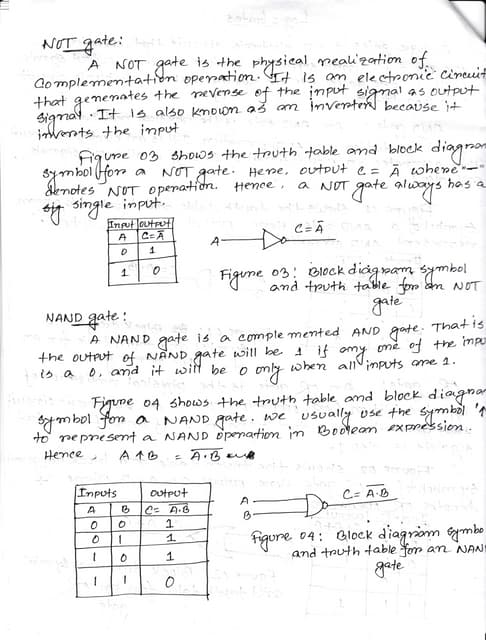 NOT gate:
A NOT gate is the physical realization of
Complementation operation. It is an electronic circuit
that generates the reverse of the input signal as output
signal. It is also known as an inverter because it
inverts the input
Figure 03 shows the truth table and block diagram
symbol for a NOT gate. Here, output C = Ā where "—"
denotes NOT operation. Hence, a NOT gate always has a
single input.
Input Output
A C=Ā
0 1
1 0
A C=Ā
Figure 03: Block diagram symbol
and truth table for an NOT
gate
NAND gate:
A NAND gate is a complemented AND gate. That is
the output of NAND gate will be 1 if any one of the inpu
is a 0, and it will be 0 only when all inputs are 1.
Figure 04 shows the truth table and block diagram
symbol for a NAND gate. We usually use the symbol '↑
to represent a NAND operation in Boolean expression.
Hence, A ↑ B = A̅.̅B̅
Inputs Output
A B C= A̅.̅B̅
0 0 1
0 1 1
1 0 1
1 1 0
A
B
C= A̅.̅B̅
Figure 04: Block diagram symbo
and truth table for an NAN
gate